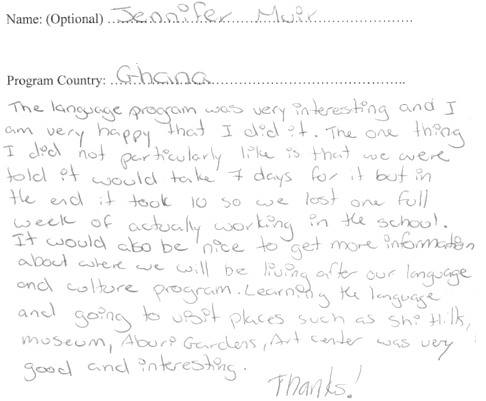 Name: (Optional) Jennifer Muir
Program Country: Ghana
The language program was very interesting and I
am very happy that I did it. The one thing
I did not particularly like is that we were
told it would take 7 days for it but in
the end it took 10 so we lost one full
week of actually working in the school.
It would also be nice to get more information
about where we will be living after our language
and culture program. Learning the language
and going to visit places such as Shi Hills,
museum, Aburi Gardens, Art center was very
good and interesting.
Thanks!